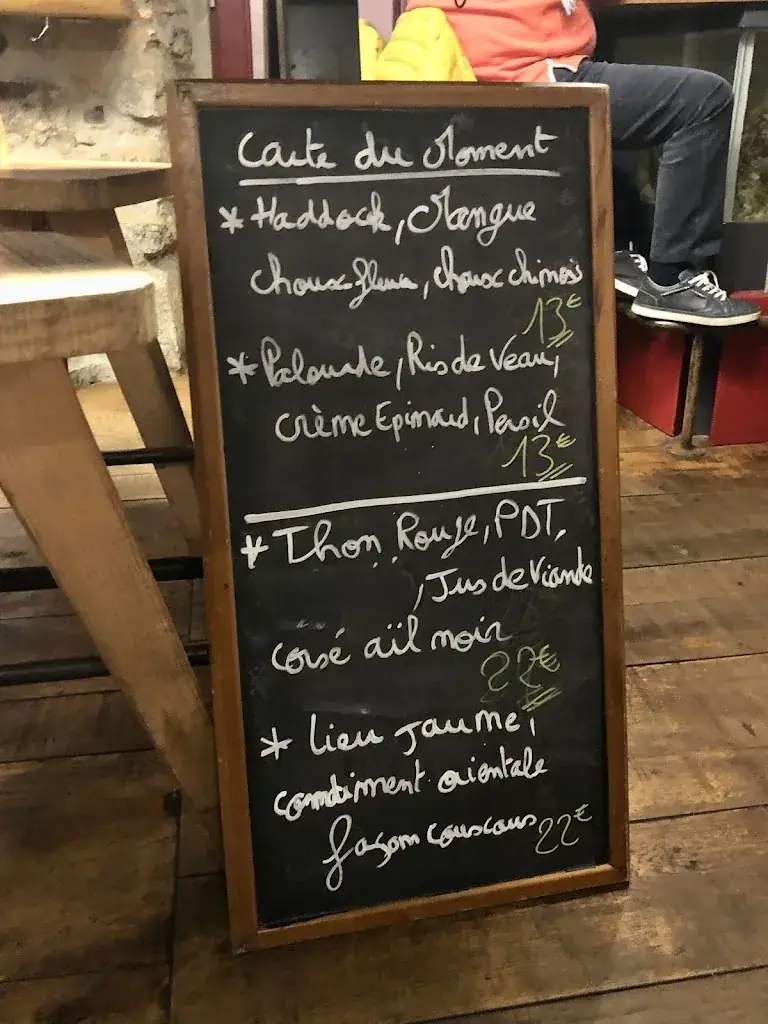 Carte du Moment
* Haddock, Mangue
choux fleur, choux chinois
13€
* Palourde, Ris de Veau,
crème Epinard, Persil
13€
* Thon Rouge, PDT,
, Jus de Viande
corsé aïl noir
22€
* lieu Jaune,
condiment orientale
façon couscous 22€